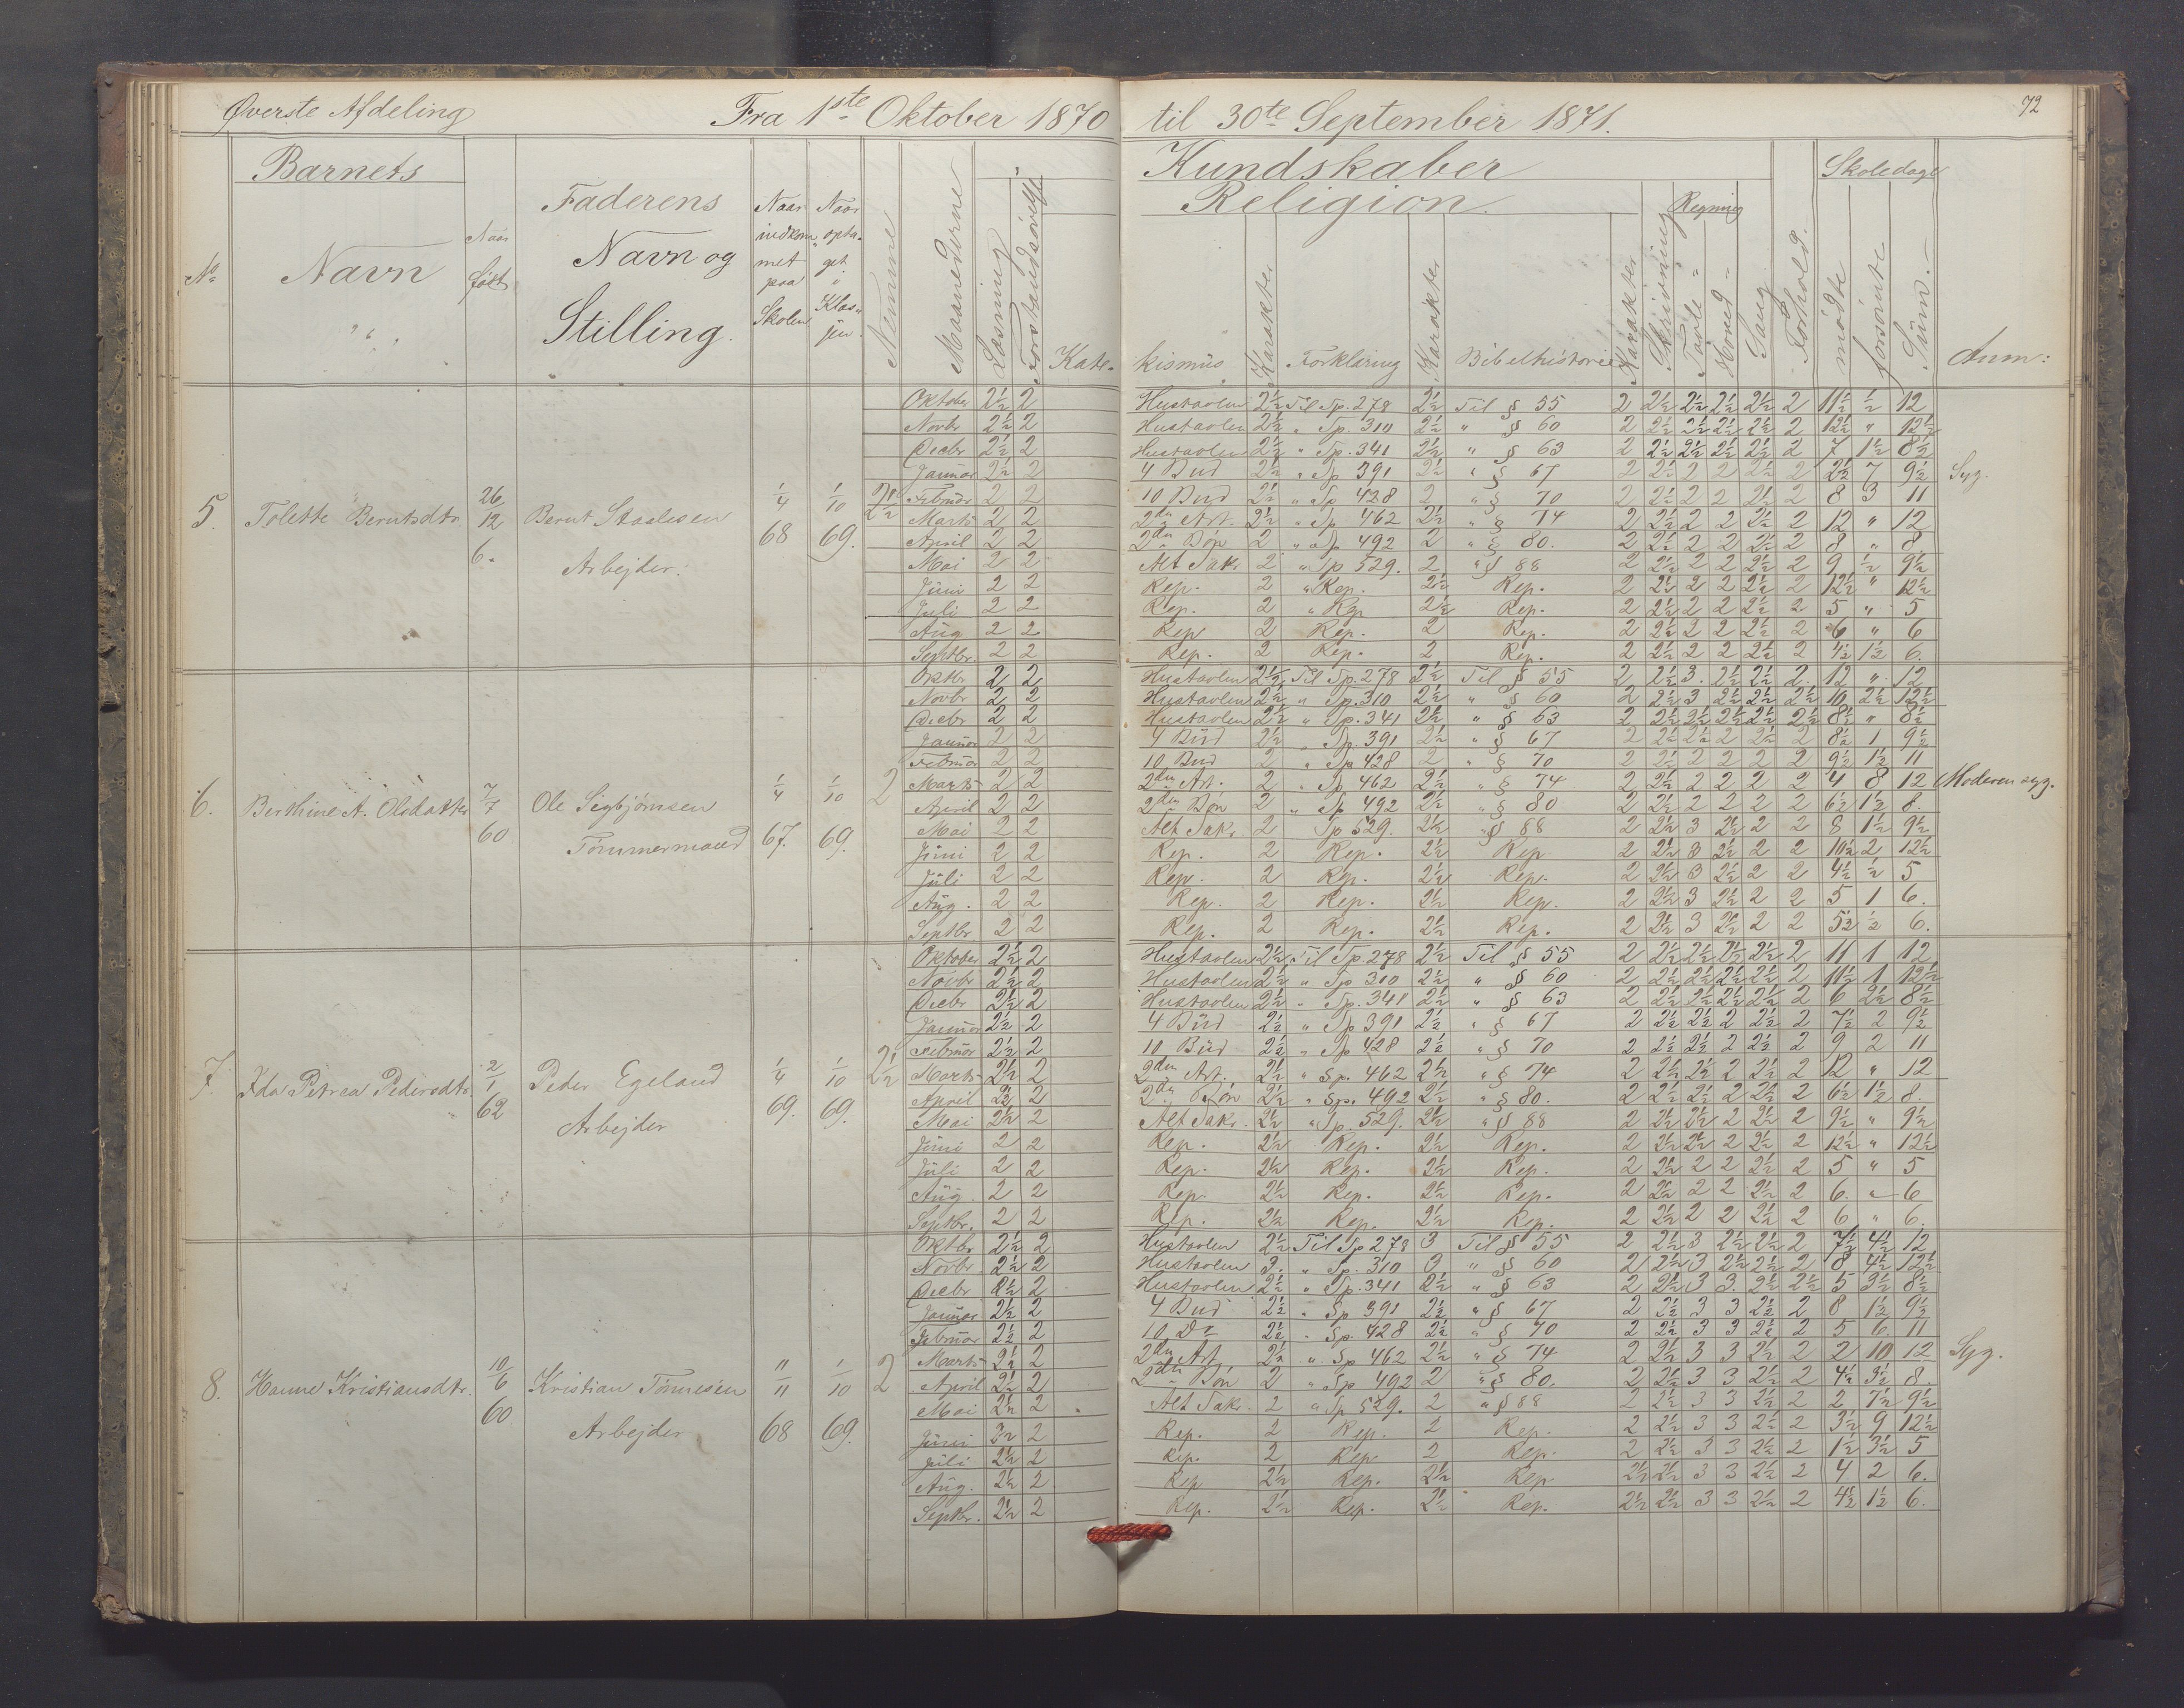 72
Øverste Afdeling Fra 1ste Oktober 1870 til 30te September 1871.
Barnets Kundskaber Skoledage
Religion. Regning
No Navn Naar født Faderens Navn og Stilling. Naar indkommet paa Skolen Naar optaget i Klassen Nemme Maanederne Læsning Forstandsøvelse Katekismus Karakter Forklaring Karakter Bibelhistorie Karakter Skrivning Tavle Hoved Sang Forhold. mødte forsømte Sum. Anm:
5. Tolette Berntsdtr 26/12 6. Bernt Staalesen Arbejder. 1/4 68 1/10 69. 2 1/2
Oktober 2½ 2 Hustavlen 2½ Til Sp. 278 2½ Til § 55 2 2½ 2½ 2½ 2½ 2 11½ ½ 12
Novbr 2½ 2 Hustavlen 2½ " Sp. 310 2½ " § 60 2 2½ 2½ 2½ 2½ 2 12½ " 12½
Decbr 2½ 2 Hustavlen 2½ " Sp. 341 2½ " § 63 2 2½ 2½ 2½ 2½ 2 7 1½ 8½
Januar 2½ 2 4 Bud 2½ " Sp 391 2½ " § 67 2 2½ 2 2 2½ 2 2½ 7 9½ Syg.
Februar 2 2 10 Bud 2½ " Sp 428 2 " § 70 2 2½ 2 2 2½ 2 8 3 11
Marts 2 2 2den Art. 2½ " Sp 462 2½ " § 74 2 2½ 2 2 2½ 2 12 " 12
April 2 2 2den Bøn 2 " Sp 492 2 " § 80. 2 2½ 2 2 2½ 2 8 " 8
Mai 2 2 Alt Sakr. 2 " Sp 529. 2 " § 88 2 2½ 2 2 2½ 2 9 ½ 9½
Juni 2 2 Rep. 2 " Rep. 2½ Rep. 2 2½ 2 2 2½ 2 12½ " 12½
Juli 2 2 Rep. 2 " Rep 2½ Rep. 2 2½ 2 2 2½ 2 5 " 5
Aug 2 2 Rep 2 Rep. 2 Rep. 2 2½ 2 2 2½ 2 6 " 6
Septbr. 2 2 Rep. 2 Rep. 2 Rep. 2 2½ 2 2 2½ 2 4½ 1½ 6.
6. Berthine A. Olsdatter 7/7 60 Ole Sigbjørnsen Tømmermand 1/4 67. 1/10 69. 2
Oktbr 2 2 Hustavlen 2½ Til Sp. 278 2½ Til § 55 2 2½ 3. 2½ 2½ 2. 12 " 12
Novbr 2 2 Hustavlen 2½ " Sp. 310 2½ " § 60 2 2½ 3 2½ 2½ 2½ 10 2½ 12½
Decbr 2 2 Hustavlen 2½ " Sp. 341 2½ " § 63 2 2½ 2½ 2½ 2½ 2½ 8½ " 8½
Januar 2 2 4 Bud 2½ " Sp. 391 2½ " § 67 2 2½ 2½ 2 2½ 2 8½ 1 9½
Februar 2 2 10 Bud 2 " Sp 428 2 " § 70 2 2½ 2 2 2 2 9½ 1½ 11
Marts 2 2 2den Art. 2 " Sp 462 2½ " § 74 2 2½ 2 2 2 2 4 8 12 Moderen syg.
April 2 2 2den Bøn 2 " Sp 492 2½ " § 80 2 2½ 2 2 2 2 6½ 1½ 8.
Mai 2 2 Alt Sakr 2 Sp 529. 2½ " § 88 2 2½ 3 2½ 2 2 8 1½ 9½
Juni 2 2 Rep. 2 Rep. 2½ Rep 2 2½ 3 2½ 2 2 10½ 2 12½
Juli 2 2 Rep. 2 Rep. 2½ Rep. 2 2½ 3 2½ 2 2 4½ ½ 5
Aug. 2 2 Rep. 2 Rep. 2½ Rep. 2 2½ 3 2½ 2 2 5 1 6.
Septbr 2 2 Rep. 2 Rep. 2½ Rep. 2 2½ 3 2½ 2 2 5½ ½ 6.
7. Ida Petrea Pedersdtr. 2/1 62 Peder Egeland Arbejder 1/4 69. 1/10 69. 2½
Oktober 2½ 2 Hustavlen 2½ Til Sp. 278 2½ Til § 55 2 2½ 2½ 2½ 2½ 2 11 1 12
Novbr 2½ 2 Hustavlen 2½ " Sp 310 2½ " § 60 2 2½ 2½ 2½ 2½ 2 10½ 1 12½
Decbr 2½ 2 Hustavlen 2½ " Sp. 341 2½ " § 63 2 2½ 2½ 2½ 2½ 2 6 2½ 8½
Januar 2½ 2 4 Bud 2½ " Sp 391 2½ " § 67 2 2½ 2½ 2 2½ 2 7½ 2 9½
Februar 2½ 2 10 Bud 2½ " Sp 428 2½ " § 70 2 2½ 2½ 2 2½ 2 9 2 11
Marts 2½ 2 2den Art. 2½ " Sp. 462 2½ " § 74 2 2½ 2½ 2 2½ 2 12 " 12
April 2½ 2 2den Bøn 2½ " Sp. 492 2½ " § 80. 2 2½ 2½ 2 2½ 2 6½ 1½ 8.
Mai 2½ 2 Alt Sakr. 2½ " Sp. 529. 2½ " § 88 2 2½ 2½ 2 2½ 2 9½ " 9½
Juni 2 2 Rep. 2½ Rep. 2½ Rep. 2 2½ 2½ 2 2½ 2 12½ " 12½
Juli 2 2 Rep. 2½ Rep. 2½ Rep. 2 2½ 2 2 2½ 2 5 " 5
Aug. 2 2 Rep. 2½ Rep. 2½ Rep. 2 2½ 2 2 2½ 2 6. " 6
Septbr. 2 2 Rep. 2½ Rep. 2½ Rep. 2 2½ 2 2 2½ 2 6 " 6.
8. Hanne Kristiansdtr. 10/6 60 Kristian Tønnesen Arbejder 11/11 68 1/10 69. 2
Oktbr 2½ 2 Hustavlen 2½ Til Sp 278 3 Til § 55 2 2½ 3 2½ 2½ 2 7½ 4½ 12
Novbr. 2½ 2 Hustavlen 3. " Sp. 310 3 " § 60 2 2½ 3 2½ 2½ 2 8 4½ 12½
Decbr 2½ 2 Hustavlen 2½ " Sp. 341 2½ " § 63 2 2½ 3 3. 2½ 2½ 5 3½ 8½
Januar 2½ 2 4 Bud 2½ " Sp 391 2½ " § 67 2 2½ 3 3 2½ 2 8 1½ 9½
Februar 2½ 2 10 Do 2½ " Sp. 428 2½ " § 70 2 2½ 3 3 2½ 2 5 6. 11
Marts 2½ 2 2den Art 2½ " Sp 462 2½ " § 74 2 2½ 3 3 2½ 2 2 10 12 Syg.
April 2½ 2 2den Bøn 2 " Sp 492 2 " § 80. 2 2½ 3 3 2½ 2 4½ 3½ 8.
Mai 2½ 2 Alt Sakr. 2 " Sp 529. 2 " § 88 2 2½ 3 3 2½ 2 2 7½ 9½
Juni 2½ 2 Rep. 2 Rep. 2 Rep. 2 2½ 3 3 2½ 2 3½ 9 12½
Juli 2½ 2 Rep. 2 Rep 2 Rep. 2 2½ 3 3 2½ 2 1½ 3½ 5
Aug. 2½ 2 Rep 2½ Rep. 2½ Rep 2½ 2½ 3 3 2½ 2 4 2 6.
Septbr. 2½ 2 Rep. 2½ Rep. 2½ Rep. 2½ 2½ 3 3 2½ 2 4½ 1½ 6.